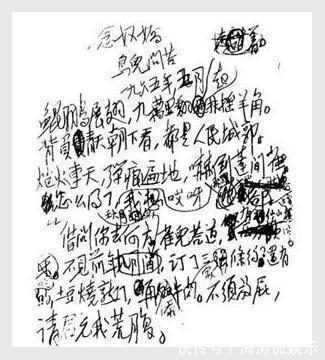 念奴娇
鸟儿问答
一九六五年五月
鲲鹏展翅,九万里翻扶摇羊角。
背负青天朝下看,都是人民城郭。
炮火连天,弹痕遍地,吓倒蓬间雀。
怎么得了,哎呀
借问你去何方,雀儿答道,
不见前年,订了三家条约 还有
土豆烧熟了,再加牛肉。不须放屁,
请君充我荒腹。
快传号/海涛侃娱乐